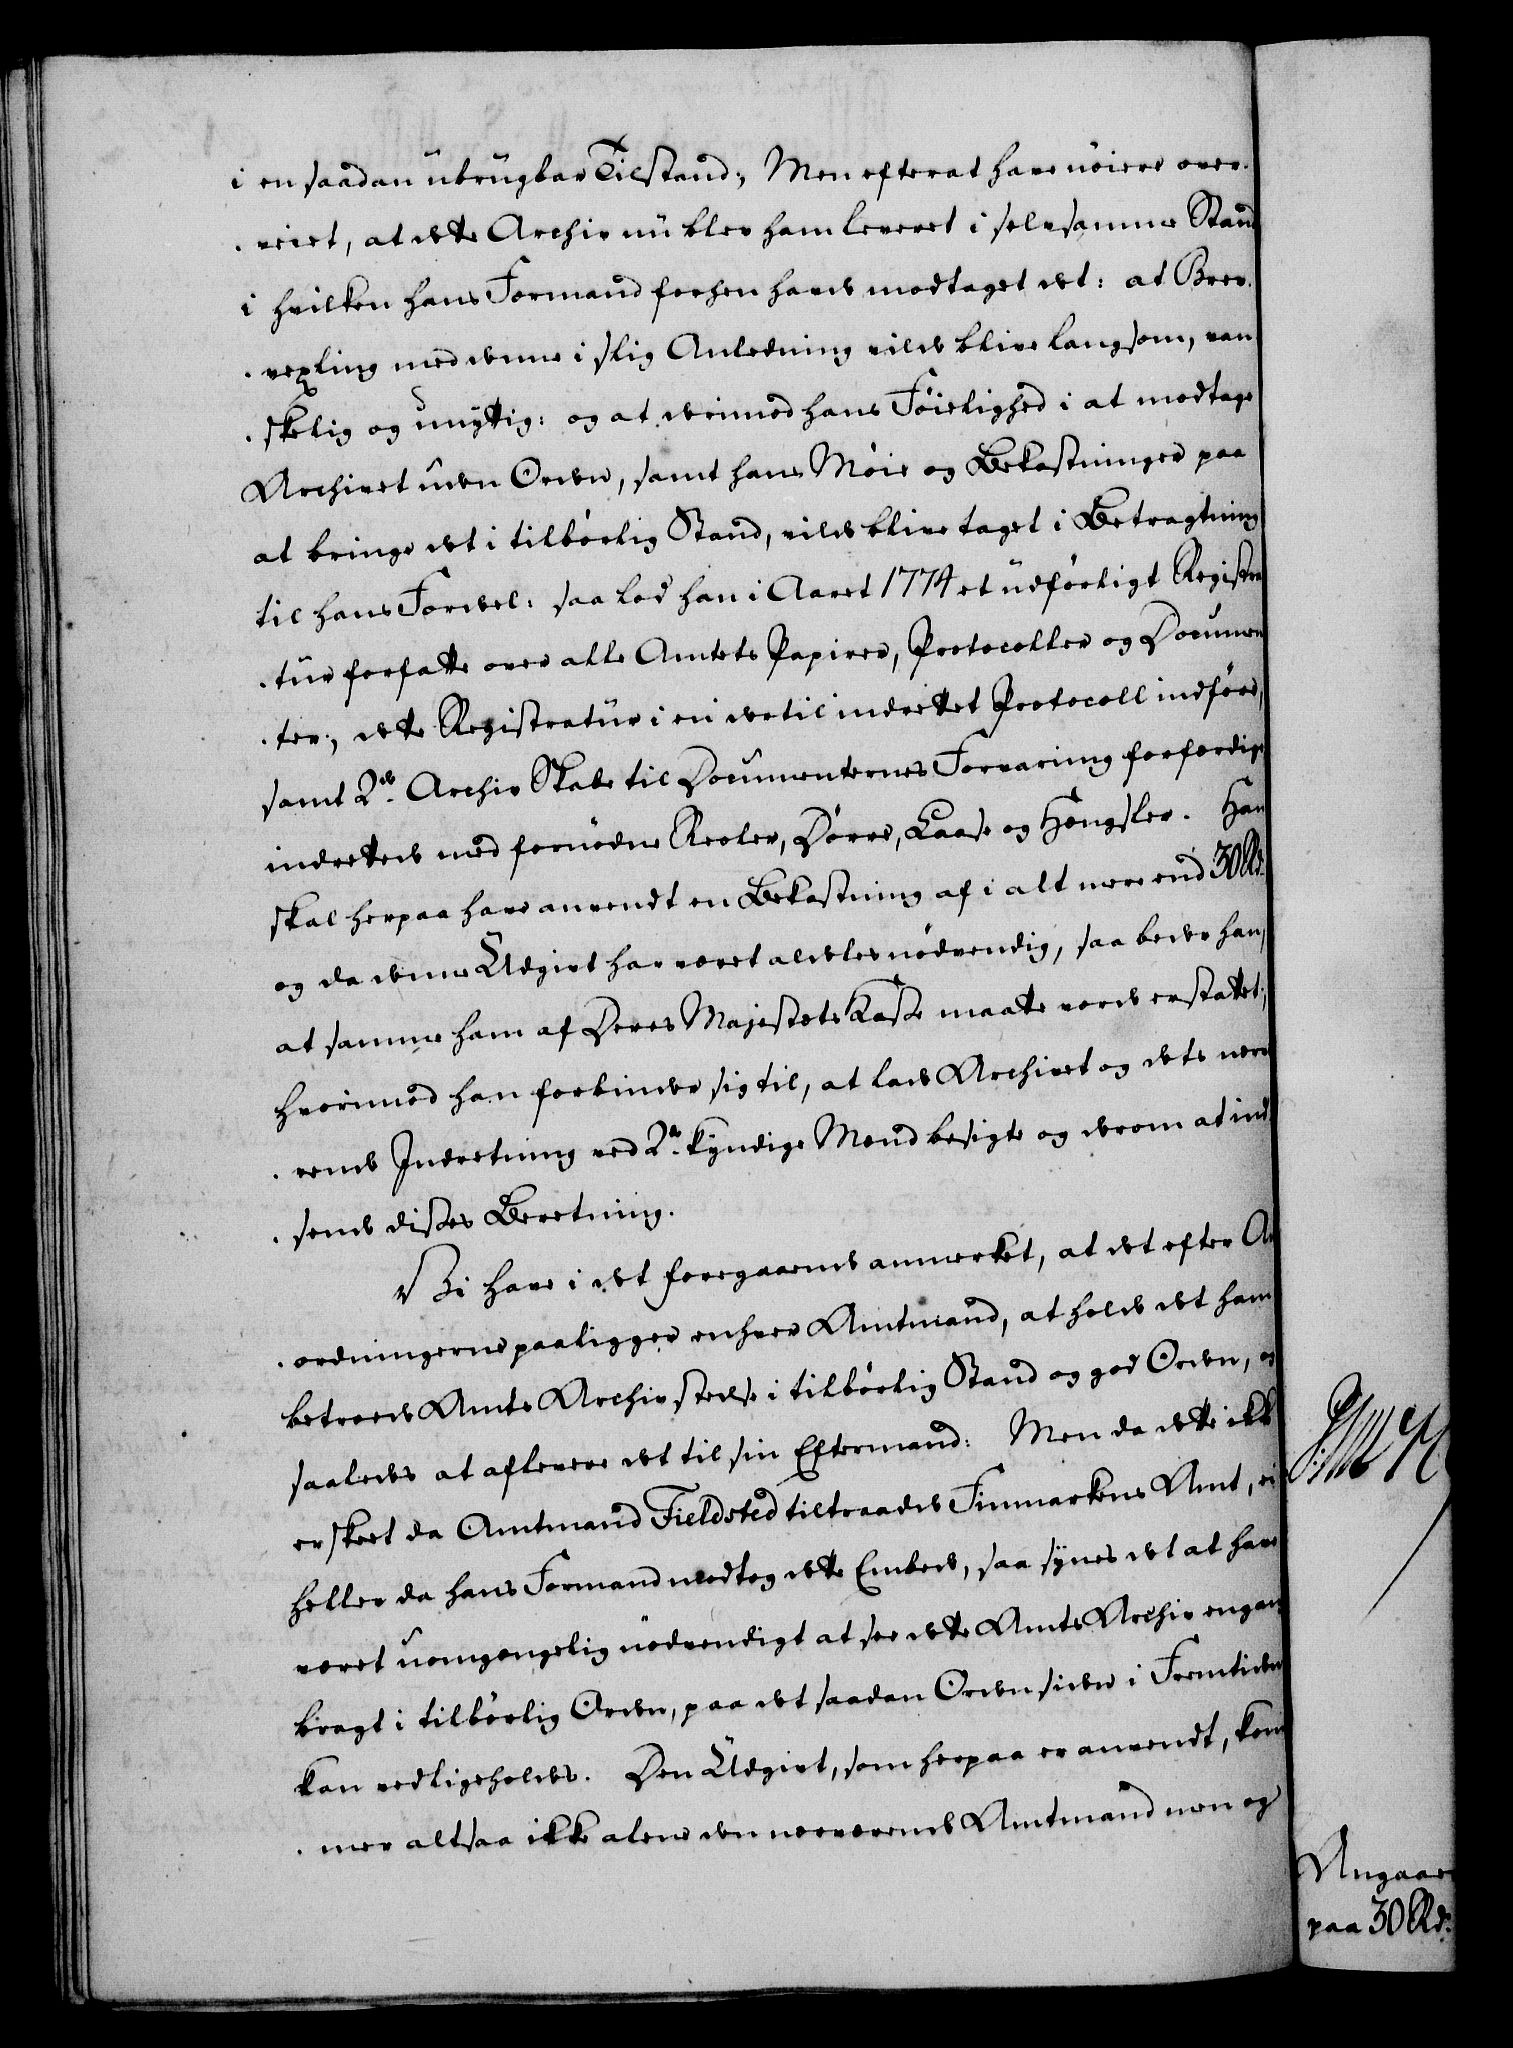 i en saadan ubrugbar Tilstand; Men efterat have nöiere over-
veiet, at dette Archiv nu blev ham leveret i selvsamme Stand
i hvilken hans Formand forhen havde modtaget det: at Brev-
vexling med denne i slig Anledning vilde blive langsom, van
skelig og unyttig: og at derimod hans Föielighed i at modtage
Archivet uden Orden, samt hans Möie og Bekostninger paa
at bringe det i tilbörlig Stand, vilde blive taget i Betragtning
til hans Fordel: saa lod han i Aaret 1774 et udförligt Registra
tur forfatte over alle Amtets Papirer, Protocoller og Documen
ter; dette Registratur i en dertil indrettet Protocoll indföre,
samt 2de Archiv Skabe til Documenternes Forvaring forfærdige
indrettede med fornödne Reoler, Dörre, Laase og Hængsler. Han
skal herpaa have anvendt en Bekostning af i alt mere end 30 Rd:
og da denne Udgivt har været aldeles nödvendig, saa beder han,
at samme ham af Deres Majestets Kasse maatte vorde erstattet;
hvorimod han forbinder sig til, at lade Archivet og dets nære
rende Indretning ved 2de kyndige Mænd besigte og derom at ind
sende disses Beretning.
Vi have i det foregaaende anmerket, at det efter An
ordningerne paaligger enhver Amtmand, at holde det ham
betroede Amts Archiv stedse i tilbörlig Stand og god Orden, og
saaledes at aflevere det til sin Eftermand: Men da dette ikke
er skeet da Amtmand Fieldsted tiltraadde Finmarkens Amt, ei
heller da hans Formand modtog dette Embede, saa synes det at have
været uomgængelig nödvendigt at see dette Amts Archiv engang
bragt i tilbörlig Orden, paa det saadan Orden siden i Fremtiden
kan vedligeholdes. Den Udgivt, som herpaa er anvendt, kom
mer altsaa ikke alene den nærværende Amtmand men og
Angaae
paa 30 Rd: